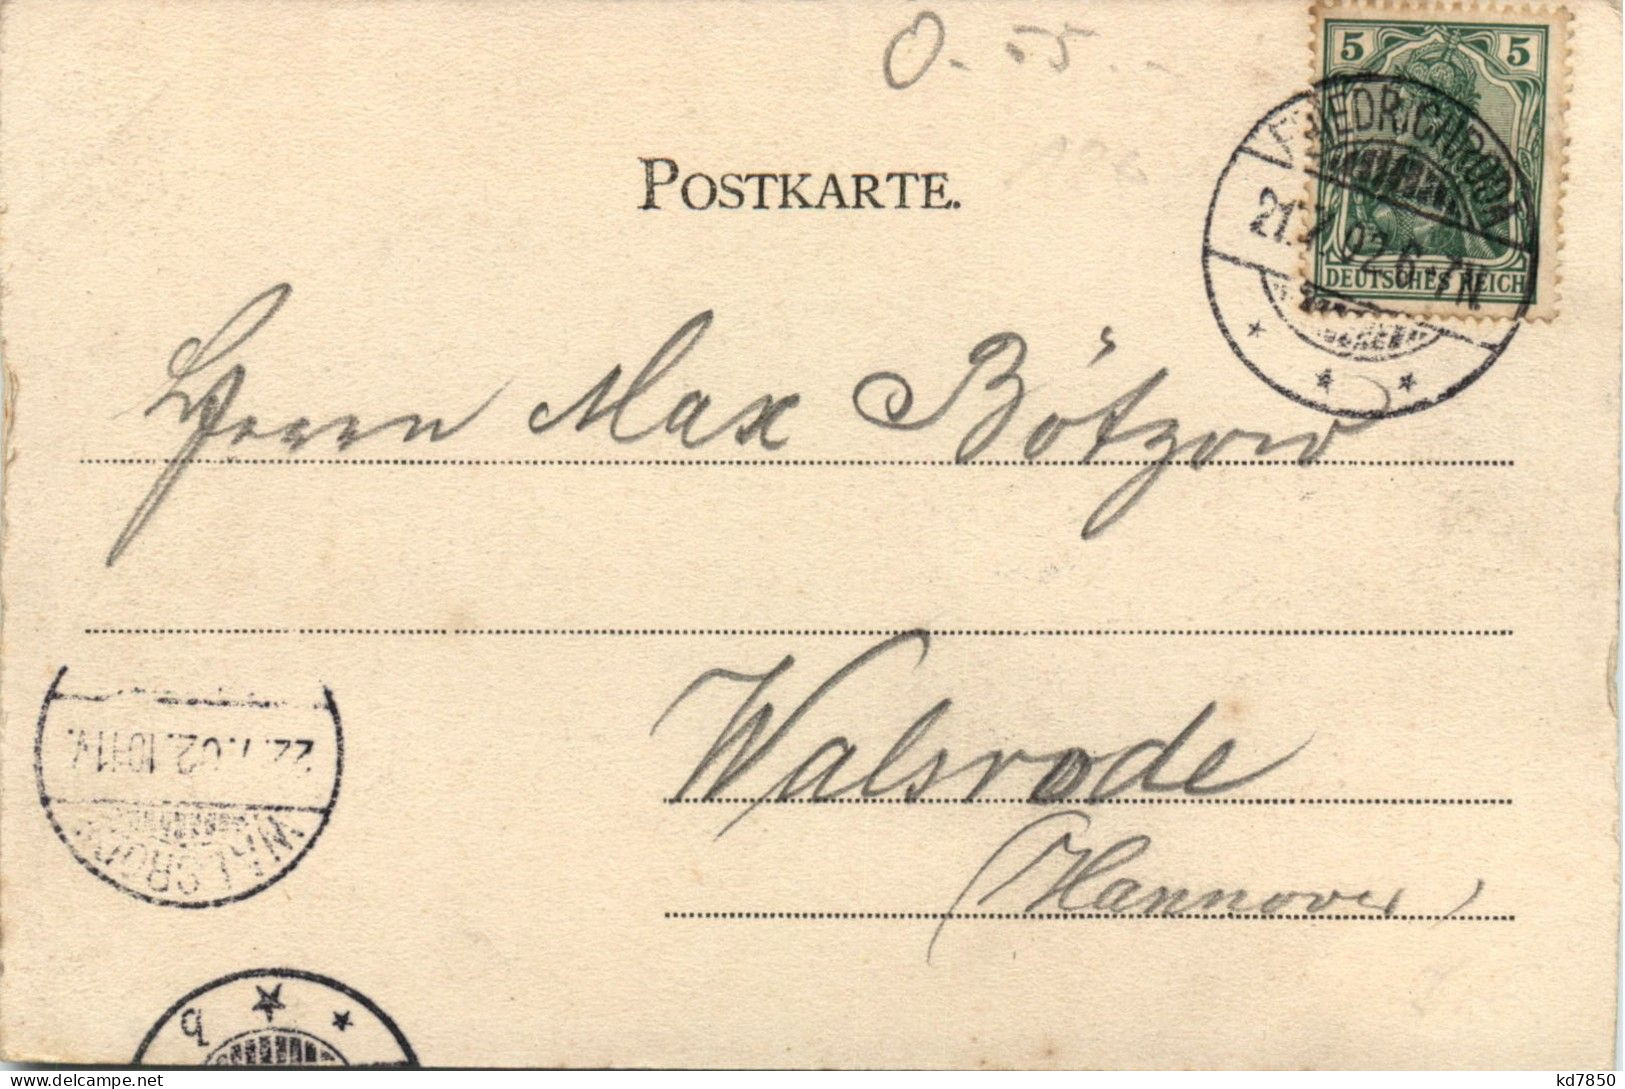 O.55.-
5 5
FRIEDRICHRODA
21.7.02.6-7N.
DEUTSCHES REICH
POSTKARTE.
Herrn Max Bötzow
Walsrode
(Hannover)
22.7.02.10-11V.
WALSRODE
b
delcampe.net
kd7850